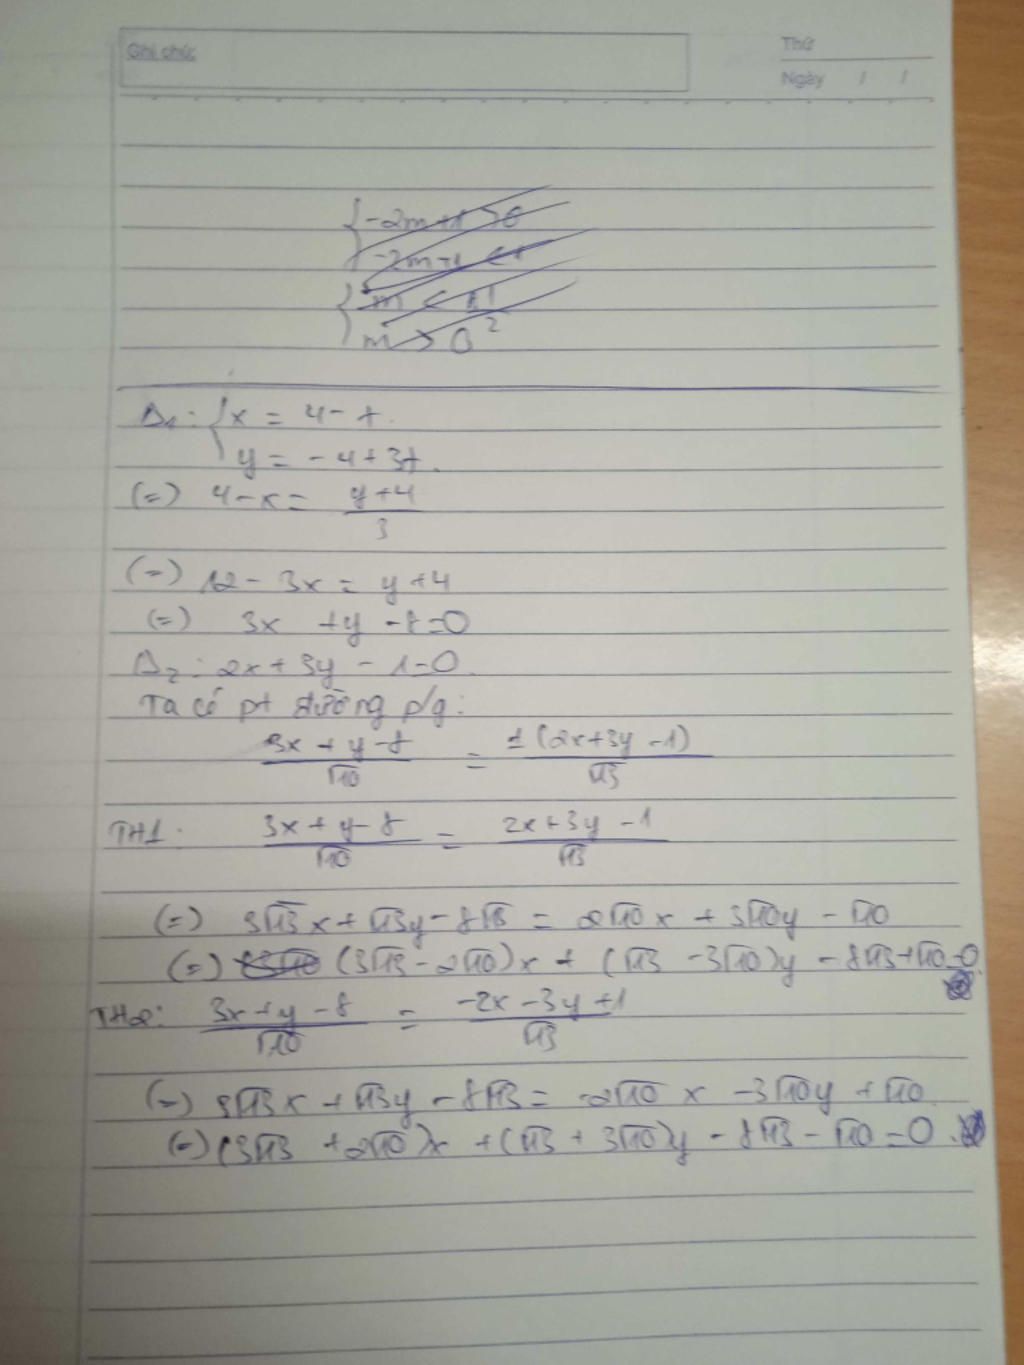 Ghi chú:
Thứ
Ngày / /
{-2m+1 > 0
-2m+1 < 1
{m < 1/2
m > 0
Δ₁: {x = 4 - t.
y = -4 + 3t.
(=) 4 - x = (y+4)/3
(=) 12 - 3x = y + 4
(=) 3x + y - 8 = 0
Δ₂: 2x + 3y - 1 = 0.
Ta có pt đường p/g:
(3x + y - 8)/√10 = ±(2x + 3y - 1)/√13
TH1: (3x + y - 8)/√10 = (2x + 3y - 1)/√13
(=) 3√13x + √13y - 8√13 = 2√10x + 3√10y - √10
(=) (3√13 - 2√10)x + (√13 - 3√10)y - 8√13 + √10 = 0.
TH2: (3x + y - 8)/√10 = (-2x - 3y + 1)/√13
(=) 3√13x + √13y - 8√13 = -2√10x - 3√10y + √10.
(=) (3√13 + 2√10)x + (√13 + 3√10)y - 8√13 - √10 = 0.